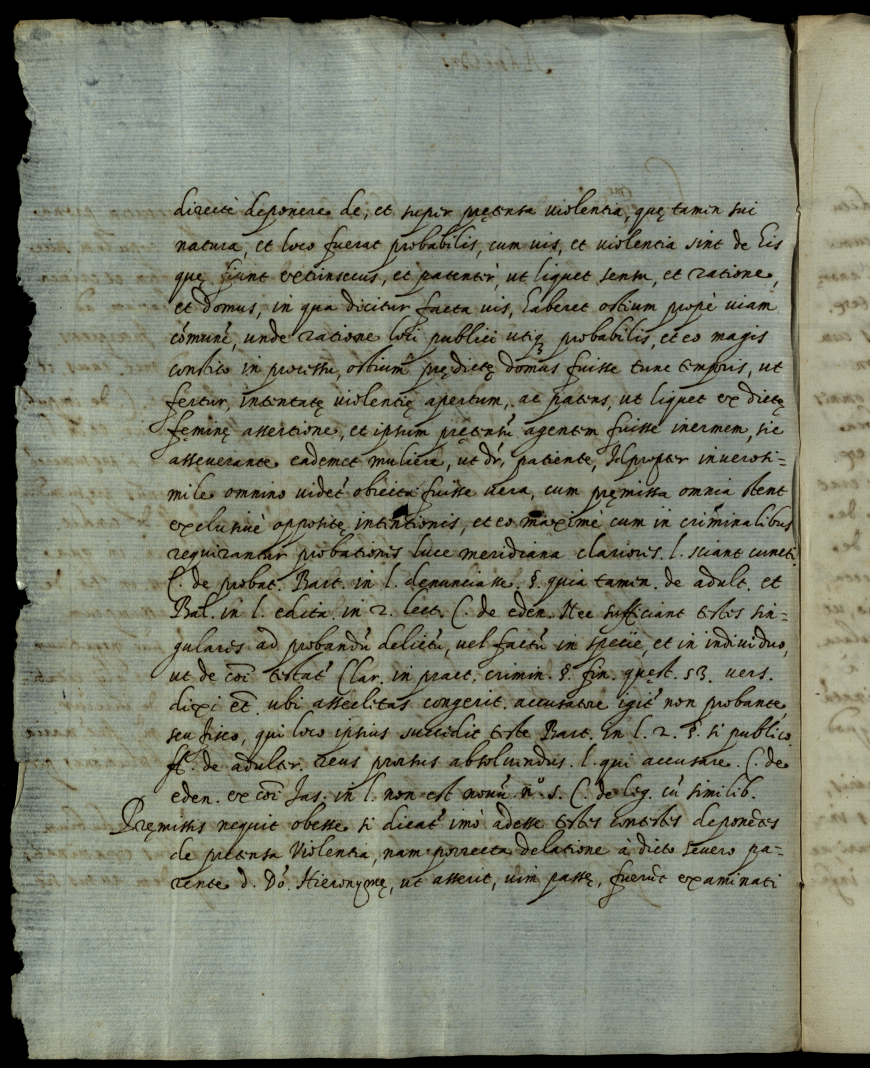 directè deponere de, et super prętensa violentia, quę tamen sui
natura, et loco fuerat probabilis, cum vis, et violentia sint de his
quę fiunt extrinsecus, et patenter, ut liquet sensu, et ratione,
et domus, in qua dicitur facta vis, haberet ostium propè viam
cómuné, unde ratione loci publici utiq; probabilis, et eo magis
constito in processu, ostium prędictę domus fuisse tunc temporis, ut
fertur, intentatę violentię apertum, ac patens, ut liquet ex dictę
feminę assertione, et ipsum prętensũ agentem fuisse inermem, sic
asseverante eademet muliere, ut dr̃, patiente, Id propter inverosi-
mile omnino videt' obiecta fuisse vera, cum pręmissa omnia stent
exclusivè oppositę intentionis, et eo maxime cum in criminalibus
requirantur probationes luce meridiana clariores. l. sciant cuncti.
C. de probat. Bart. in l. denunciasse. §. quia tamen. de adult. et
Bal. in l. edita. in 2. lect. C. de eden. Nec sufficiant testes sin=
gulares ad probandũ delictũ, vel factũ in specie, et in individuo,
ut de coi testat' Clar. in pract. crimin. §. fin. quęst. 53. vers.
dixi et. ubi asseclitas congerit. accusatore igit' non probante,
seu fisco, qui loco ipsius succedit teste Bart. in l. 2. §. si publico.
ff. de adulter. reus prorsus absolvendus. l. qui accusare. C. de
eden. ex coi Jas. in l. non est novũ. n.º 5. C. de leg. cũ similib.
Pręmissis nequit obesse si dicat' imò adesse testes contestes deponẽtes
de pretensa Violentia, nam porrecta delatione a dicto Severo pa=
rente d. Dó. Hieronymę, ut asserit, vim passę, fuerũt examinati